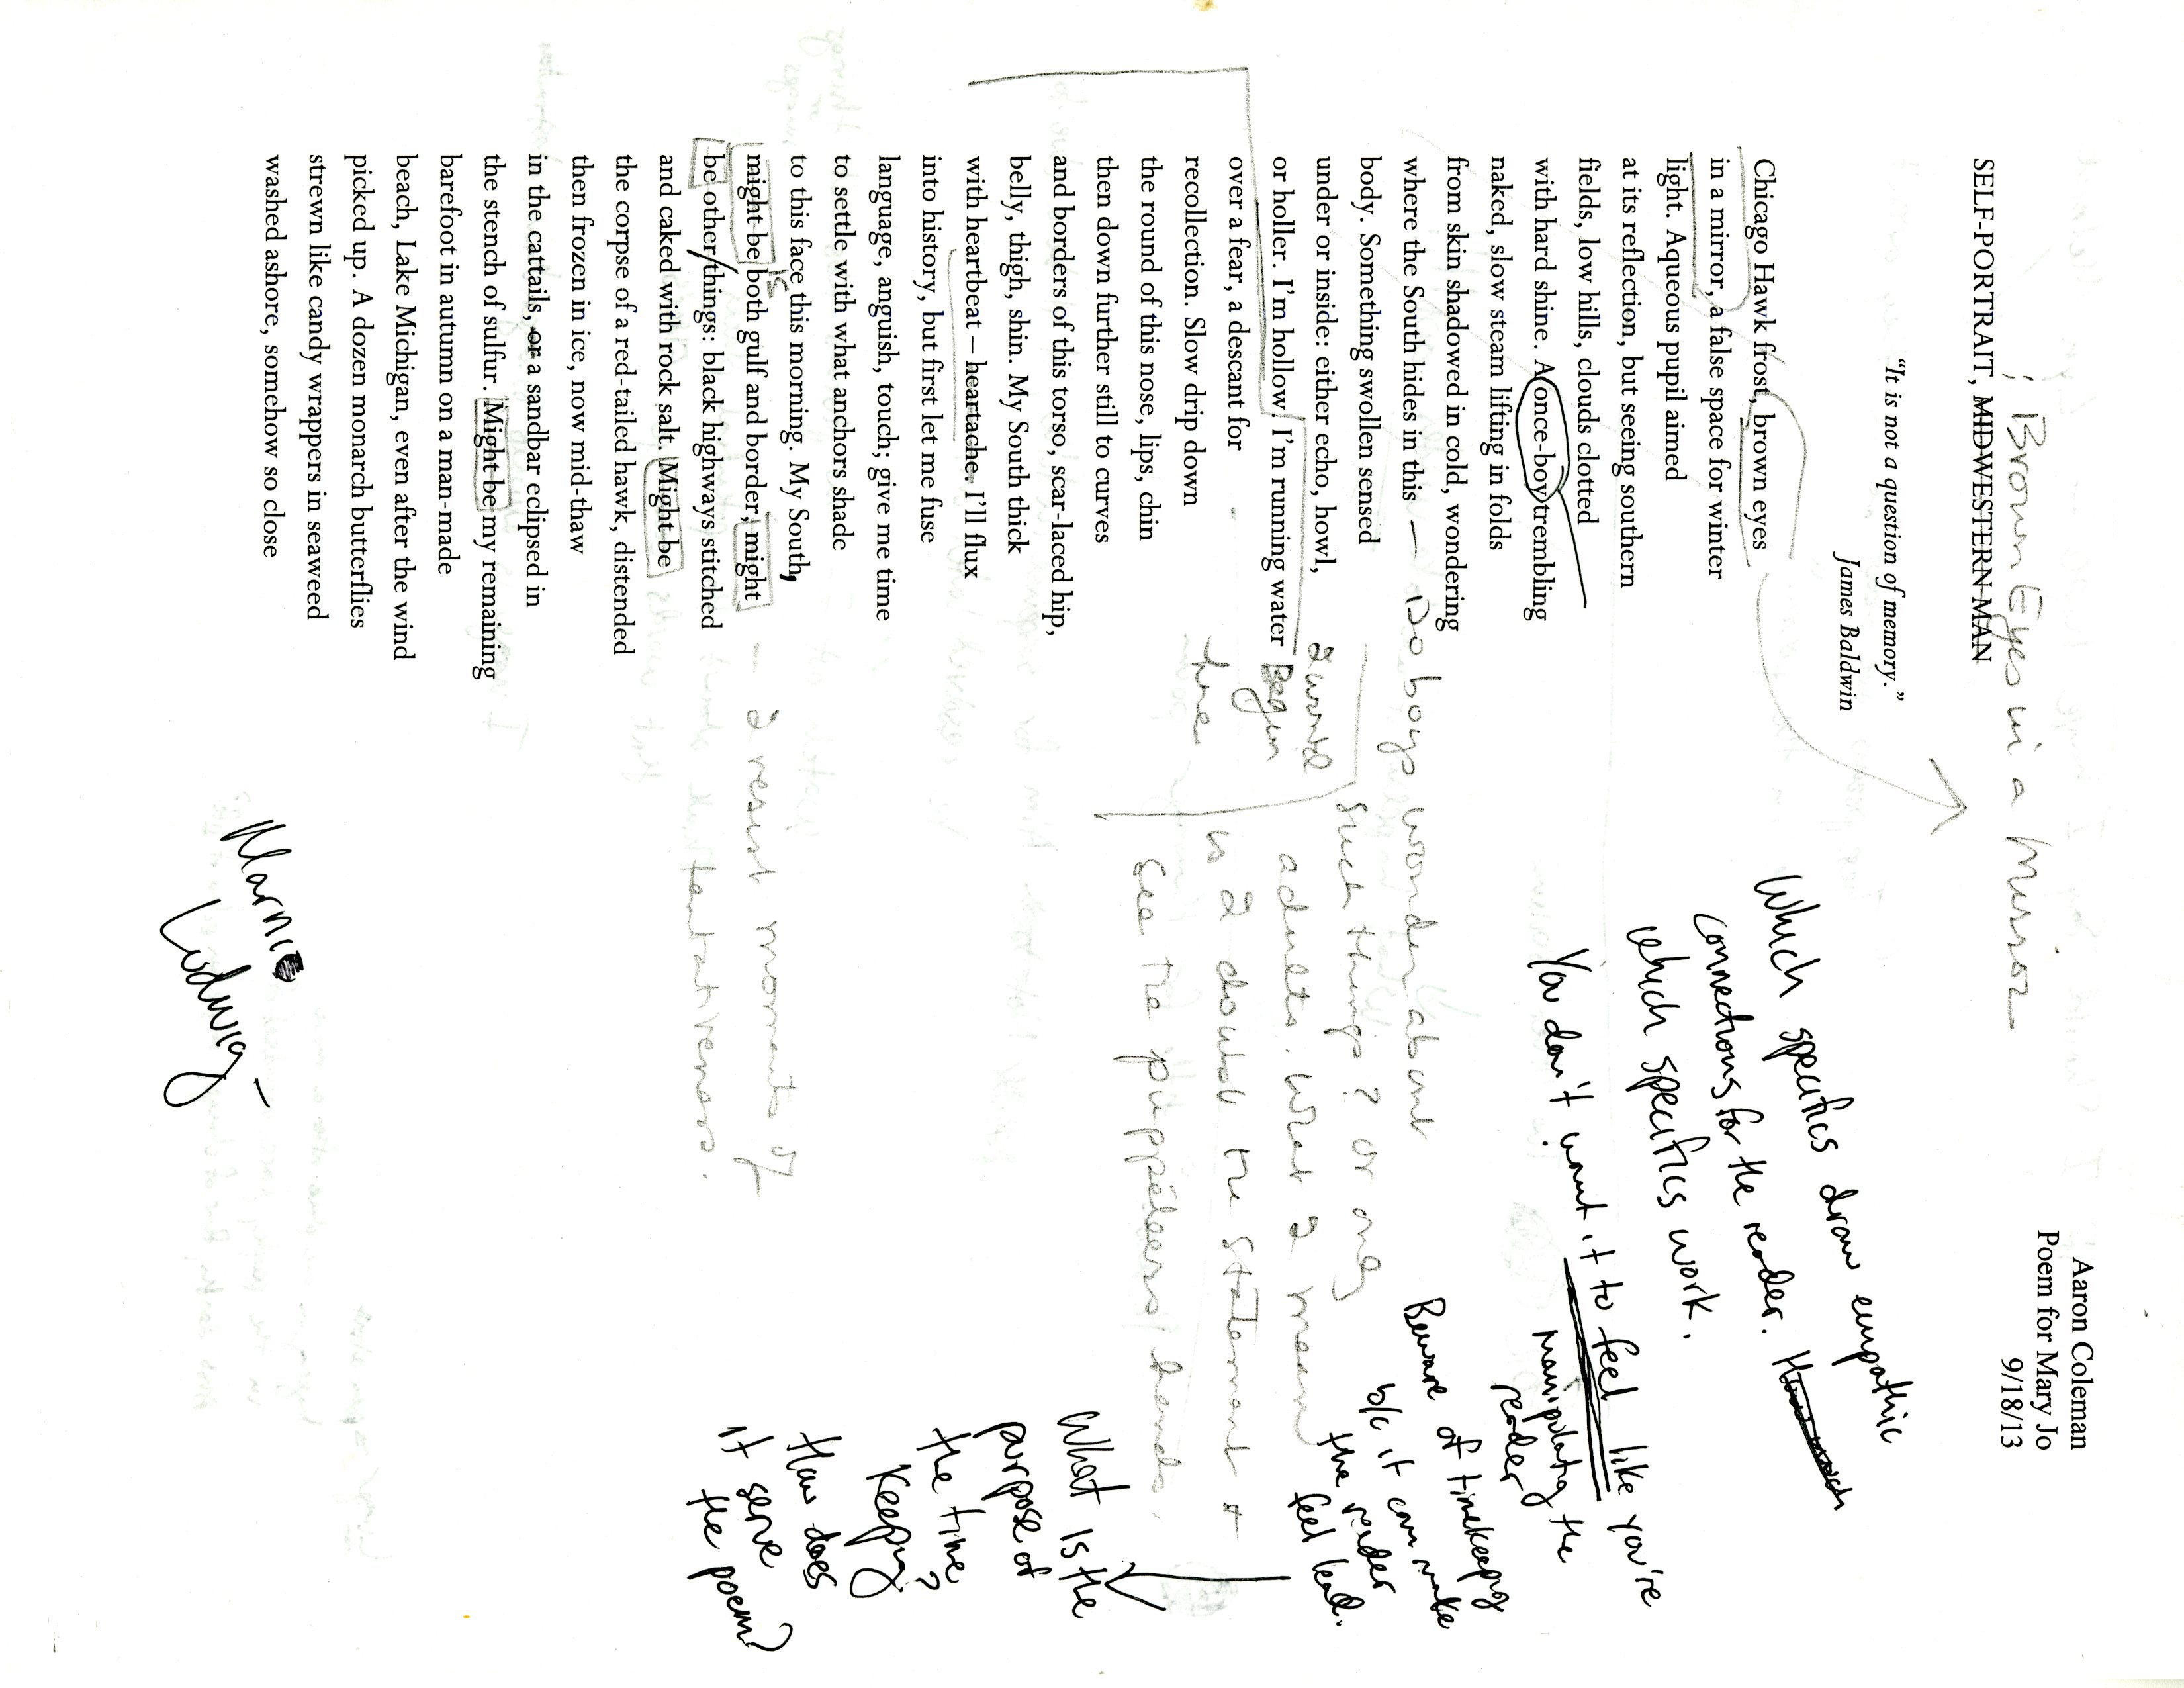 Aaron Coleman
Poem for Mary Jo
9/18/13
; Brown Eyes in a Mirror
SELF-PORTRAIT, MIDWESTERN MAN
“It is not a question of memory.”
James Baldwin
Chicago Hawk frost, brown eyes
in a mirror, a false space for winter
light. Aqueous pupil aimed
at its reflection, but seeing southern
fields, low hills, clouds clotted
with hard shine. A once-boy trembling
naked, slow steam lifting in folds
from skin shadowed in cold, wondering
where the South hides in this —
body. Something swollen sensed
under or inside: either echo, howl,
or holler. I’m hollow. I’m running water
over a fear, a descant for
recollection. Slow drip down
the round of this nose, lips, chin
then down further still to curves
and borders of this torso, scar-laced hip,
belly, thigh, shin. My South thick
with heartbeat – heartache. I’ll flux
into history, but first let me fuse
language, anguish, touch; give me time
to settle with what anchors shade
to this face this morning. My South,
might be both gulf and border; might
be other things: black highways stitched
and caked with rock salt. Might be
the corpse of a red-tailed hawk, distended
then frozen in ice, now mid-thaw
in the cattails, or a sandbar eclipsed in
the stench of sulfur. Might be my remaining
barefoot in autumn on a man-made
beach, Lake Michigan, even after the wind
picked up. A dozen monarch butterflies
strewn like candy wrappers in seaweed
washed ashore, somehow so close
Do boys wonder about
such things? or only
adults. What I mean
is I doubt the statement +
see the puppeteers' hands.
I would
Begin
here
– I resist moments of
tentativeness.
Which specifics draw empathic
connections for the reader.
which specifics work.
You don't want it to feel like you're
manipulating the
reader
Beware of timekeeping
b/c it can make
the reader
feel lead.
What is the
purpose of
the time
keeping?
How does
it serve
the poem?
Marni
Ludwig –